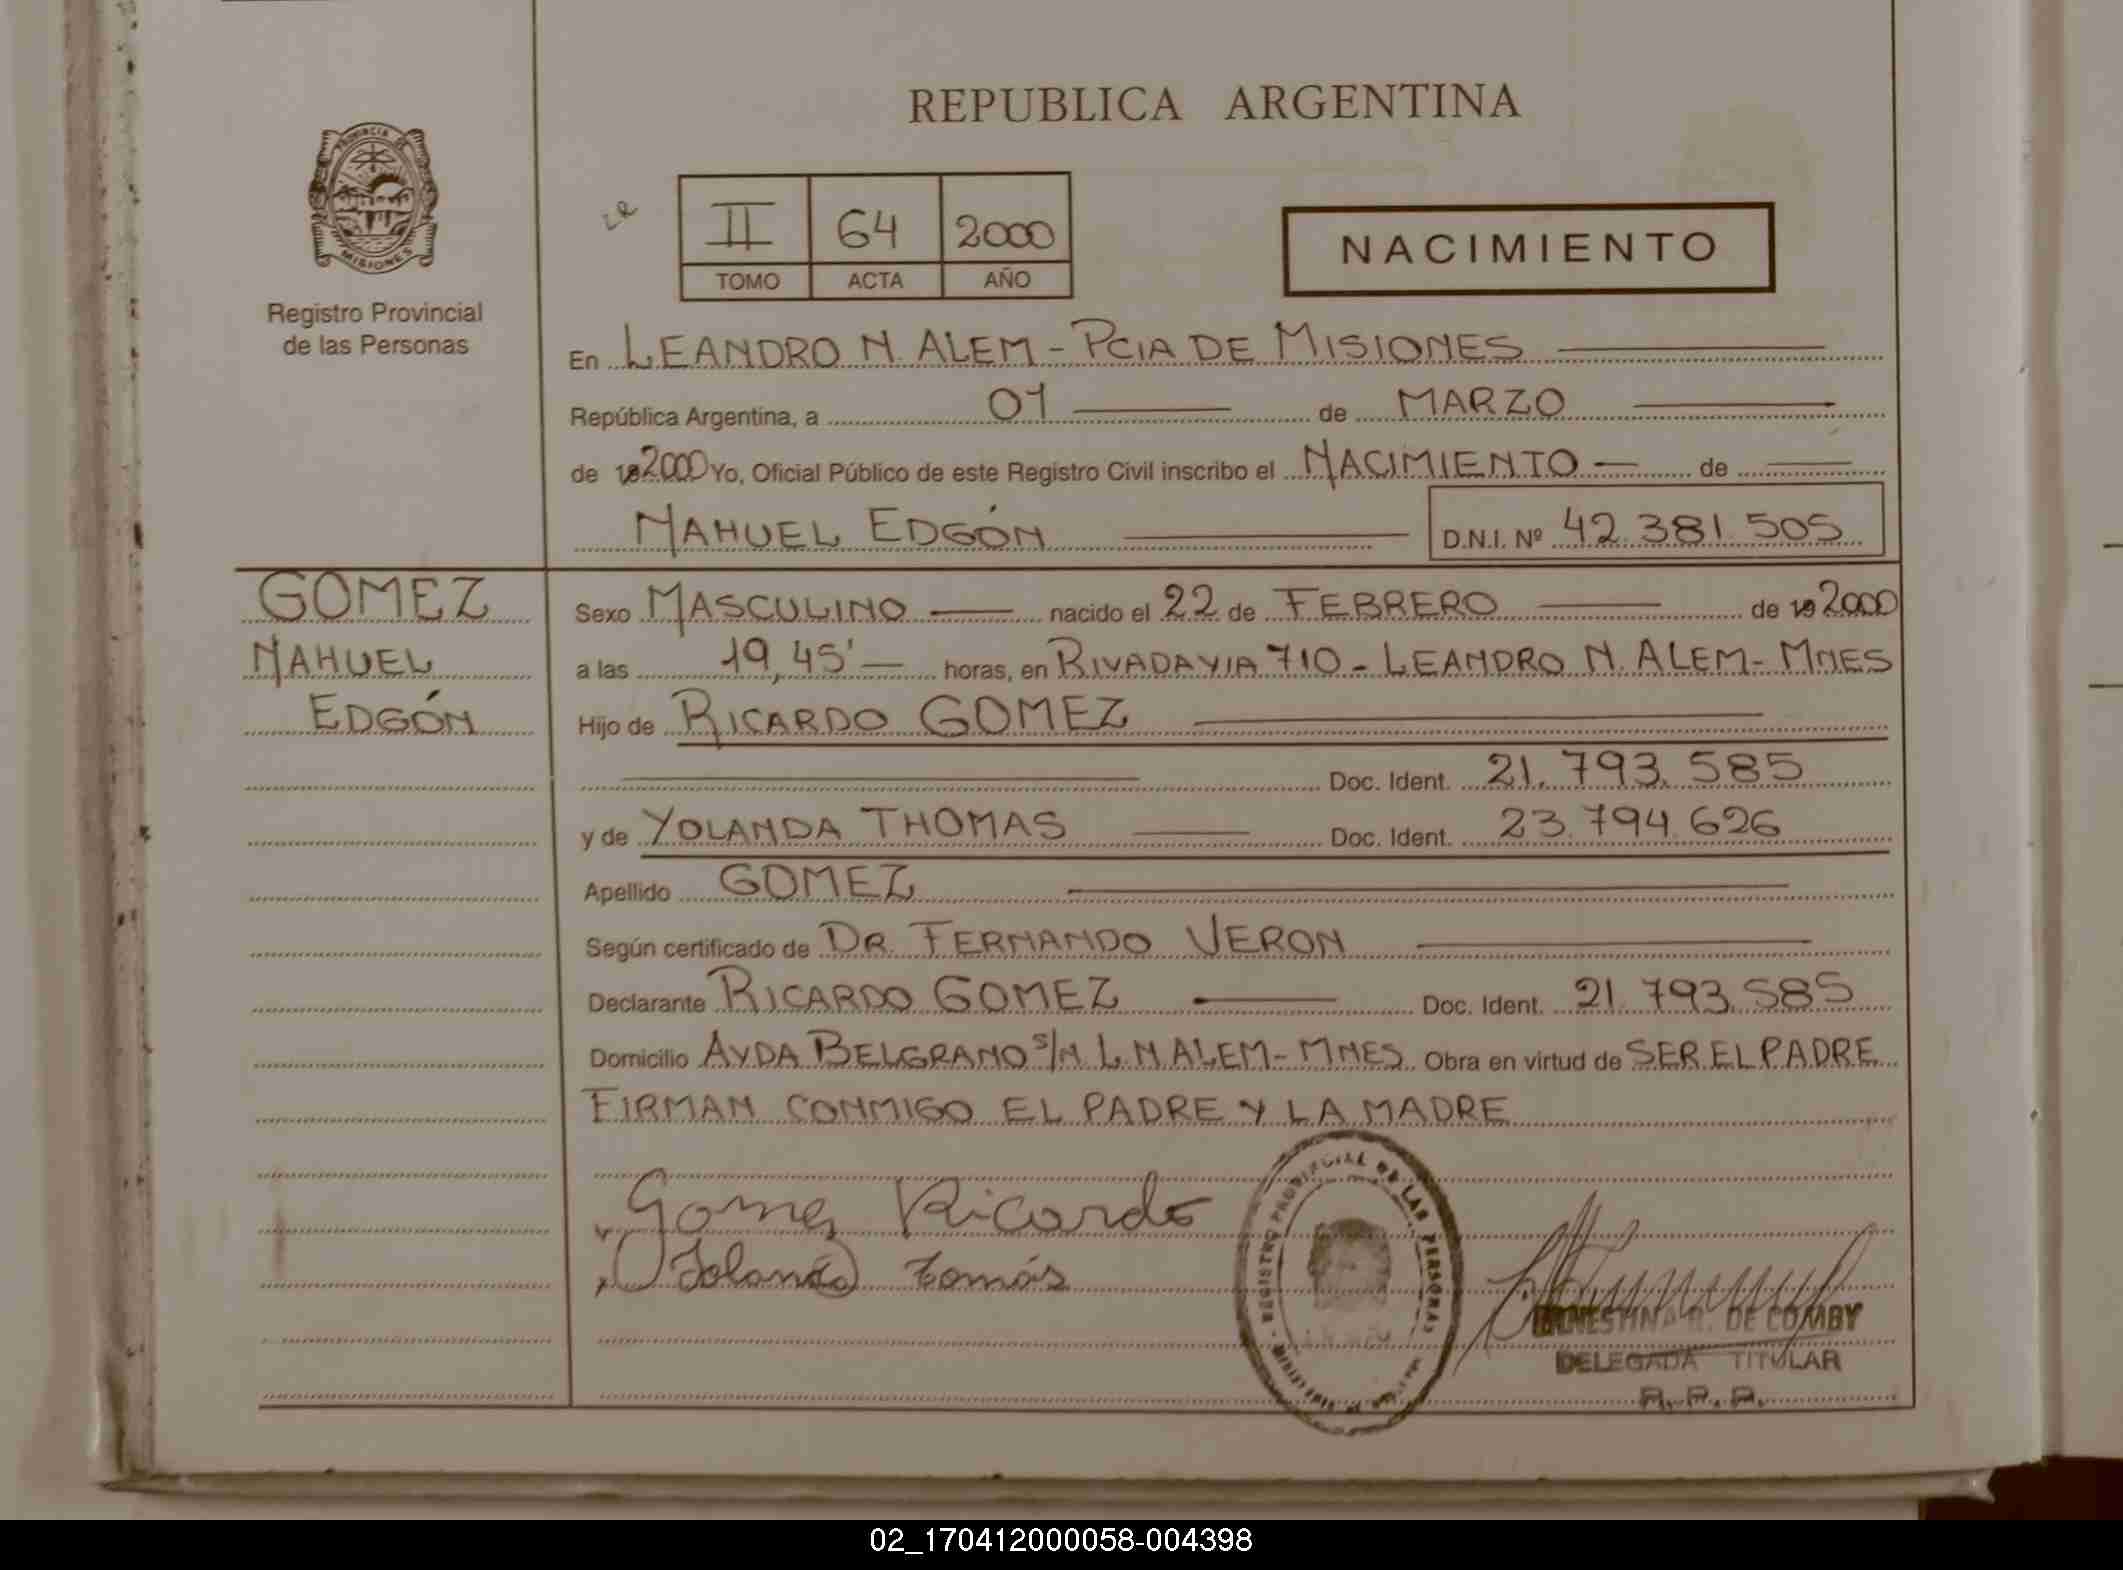 REPUBLICA ARGENTINA
PROVINCIA DE
MISIONES
Registro Provincial
de las Personas
II 64 2000
TOMO ACTA AÑO
NACIMIENTO
En LEANDRO N. ALEM - PCIA DE MISIONES
República Argentina, a 01 de MARZO
de 192000 Yo, Oficial Público de este Registro Civil inscribo el NACIMIENTO de
NAHUEL EDGÓN D.N.I. Nº 42.381.505
GOMEZ
NAHUEL
EDGÓN
Sexo MASCULINO nacido el 22 de FEBRERO de 192000
a las 19,45' horas, en RIVADAVIA 710 - LEANDRO N. ALEM - MNES
Hijo de RICARDO GOMEZ
Doc. Ident. 21.793.585
y de YOLANDA THOMAS Doc. Ident. 23.794.626
Apellido GOMEZ
Según certificado de DR. FERNANDO VERON
Declarante RICARDO GOMEZ Doc. Ident. 21.793.585
Domicilio AVDA BELGRANO S/N L.N.ALEM - MNES Obra en virtud de SER EL PADRE
FIRMAN CONMIGO EL PADRE Y LA MADRE
Gomez Ricardo
Yolanda tomás
REGISTRO PROVINCIAL DE LAS PERSONAS
DE COMBY
DELEGADA TITULAR
R. P. P.
02_170412000058-004398